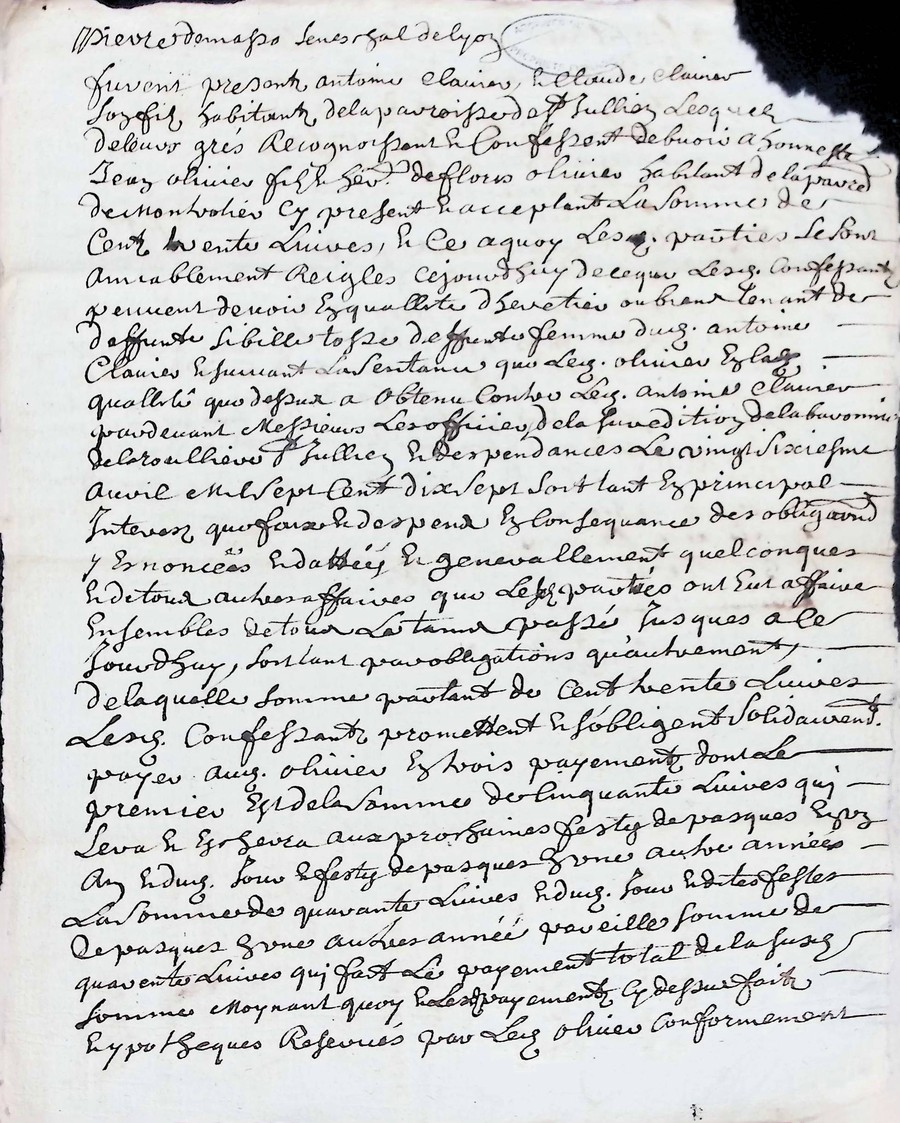 Pierre de masso seneschal de lyon
furent presentz antoine Clairer, & Claude Clairer
son filz habitantz de la parroisse de St Jullien Lesquelz
de leurs grés Recognoissent & Confessent debvoir a honneste
Jean olivier filz & hér. de floris olivier habitant de la parred
de Montrotier Cy present & acceptant La Somme de
Centz trente Livres, & Ce a quoy Lesd. parties Se sont
Amiablement Reigles Cejourdhuy de ce que Lesd. Confessantz
peuvent devoir En quallite dheretier ou biens Tenant de
deffunte Sibille tosse deffunte femme dud. antoine
Clairer & suivant La Sentance que Led. olivier En lad.
quallité que dessus a Obtenu Contre Led. antoine Clairer
pardevant Messieurs Les officiers de la Juredition de la baronnie
de la roulliere St Jullien & despendances Le vingt Sixiesme
Avril Mil Sept Cent dix Sept Soit tant En principal
Interest que fraix & despens En Consequance des obligaond
y Enoncées & dattéés & generallement quelconques
& de tous autres affaires que Lesd parties ont Eut affaire
Ensembles de tout Le tams passé Jusques a Ce
Jourdhuy, soit tant par obligations qu'autrement,
de laquelle somme partant de Cent trente Livres
Lesd. Confessantz promettent & s'obligent Solidairent.
payer aud. olivier En trois payementz dont Le
premier Est de la Somme de Cinquante Livres qui
Sera & Escherra aux prochaines festes de pasques En un
An & dud. Jour & festes de pasques En une autre années
La Somme de quarante Livres & dud. Jour & dites festes
De pasques En une autres année pareille somme de
quarente Livres qui fait Le payement total de la susd
somme Moynant quoy & Lesd payementz Cy dessus faitz
& ypotheques Reservés par Led olivier Conformement